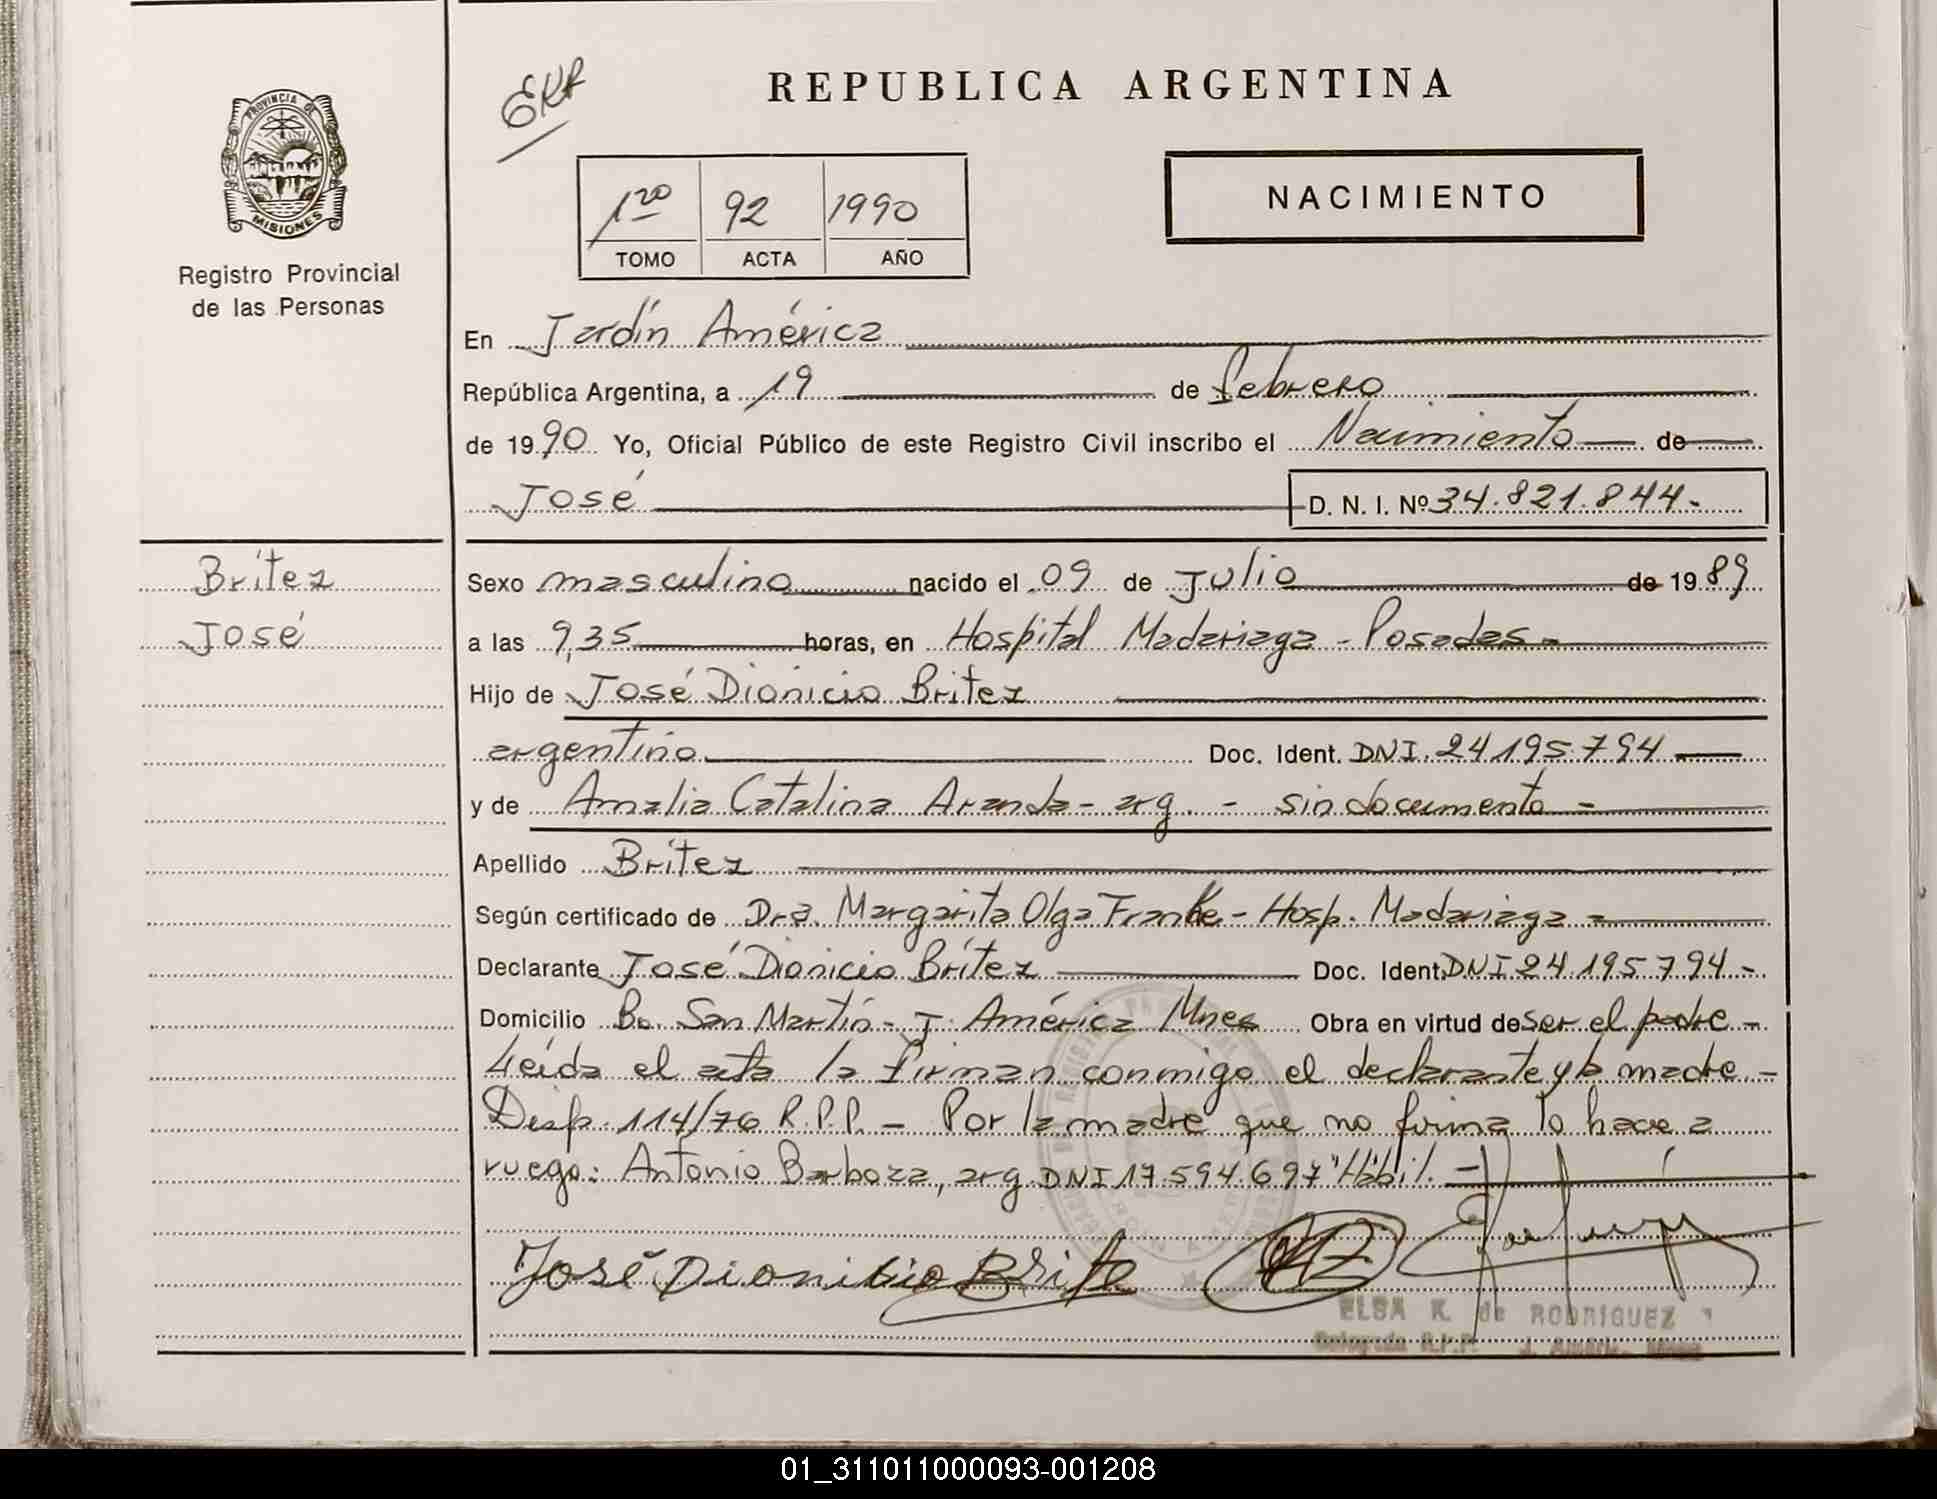 REPUBLICA ARGENTINA
PROVINCIA DE
MISIONES
Registro Provincial
de las Personas
1ro 92 1990
TOMO ACTA AÑO
NACIMIENTO
En Jardín América
República Argentina, a 19 de febrero
de 1990 Yo, Oficial Público de este Registro Civil inscribo el Nacimiento de
José D. N. I. Nº 34.821.844-
Britez
José
Sexo masculino nacido el 09 de Julio de 1989
a las 9,35 horas, en Hospital Madariaga - Posadas -
Hijo de José Dionicio Britez
argentino Doc. Ident. DNI. 24.195.794
y de Amalia Catalina Aranda - arg. - sin documento -
Apellido Britez
Según certificado de Dra. Margarita Olga Franke - Hosp. Madariaga -
Declarante José Dionicio Britez Doc. Ident. DNI 24.195.794 -
Domicilio Bo. San Martín - J. América Mnes Obra en virtud de ser el padre -
Leída el acta la firman conmigo el declarante y la madre. -
Disp. 114/76 R.P.P. - Por la madre que no firma lo hace a
ruego: Antonio Barboza, arg. DNI 17.594.697 "Hábil. -
José Dionicio Brite
ELSA K. de RODRIGUEZ
Delegada R.P.P.
01_311011000093-001208